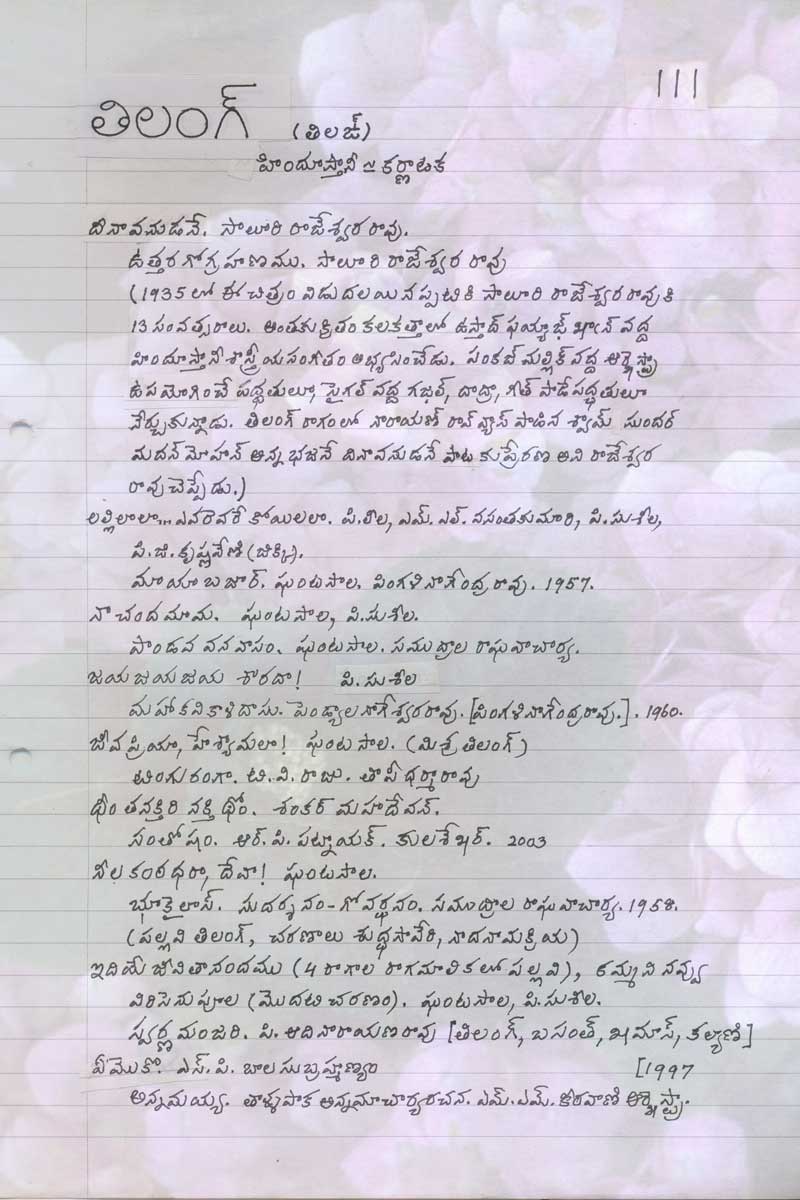 111
తిలంగ్ (తిలఙ్)
హిందూస్తానీ ≃ కర్ణాటక
దినావనుడనే. సాలూరి రాజేశ్వరరావు.
ఉత్తర గోగ్రహణము. సాలూరి రాజేశ్వర రావు
(1935 లో ఈ చిత్రం విడుదలయినప్పటికి సాలూరి రాజేశ్వరరావుకి
13 సంవత్సరాలు. అంతకుక్రితం కలకత్తాలో ఉస్తాద్ ఫయ్యాజ్ ఖాన్ వద్ద
హిందూస్తానీ శాస్త్రీయ సంగీతం అభ్యసించేడు. పంకజ్ మల్లిక్ వద్ద ఆర్కెస్ట్రా
ఉపయోగించే పద్ధతులూ, సైగల్ వద్ద గజల్, దాద్రా, గీత్ పాడే పద్ధతులూ
నేర్చుకున్నాడు. తిలంగ్ రాగంలో నారాయణ్ రావ్ వ్యాస్ పాడిన శ్యామ్ సుందర్
మదన్ మోహన్ అన్న భజనే దినావనుడనే పాట కు ప్రేరణ అని రాజేశ్వర
రావు చెప్పేడు.)
లల్లిలాలా... ఎవరెవరే కోయిలలా. పి.లీల, ఎమ్.ఎల్. వసంతకుమారి, పి.సుశీల,
పి.జి.కృష్ణవేణి (జిక్కి).
మాయాబజార్. ఘంటసాల. పింగళి నాగేంద్ర రావు. 1957.
నా చందమామ. ఘంటసాల, పి.సుశీల.
పాండవ వనవాసం. ఘంటసాల. సముద్రాల రాఘవాచార్య.
జయ జయ జయ శారదా! పి.సుశీల
మహాకవి కాళిదాసు. పెండ్యాల నాగేశ్వరరావు. [పింగళి నాగేంద్రరావు.]. 1960.
జీవ ప్రియా, హే శ్యామలా! ఘంటసాల. (మిశ్ర తిలంగ్)
టింగురంగా. టి.వి.రాజు. తాపీ ధర్మారావు
ధీం తనక్తిరి నక్తి ధోం. శంకర్ మహాదేవన్.
సంతోషం. ఆర్.పి.పట్నాయక్. కులశేఖర్. 2003
నీలకంఠధరా, దేవా! ఘంటసాల.
భూకైలాస్. సుదర్శనం-గోవర్ధనం. సముద్రాల రాఘవాచార్య. 1958.
(పల్లవి తిలంగ్, చరణాలు శుద్ధసావేరి, నాదనామక్రియ)
ఇదియే జీవితానందము (4 రాగాల రాగమాలికలో పల్లవి), కమ్మని నవ్వు
విరిసెను పూల (మొదటి చరణం). ఘంటసాల, పి.సుశీల.
స్వర్ణ మంజరి. పి. ఆదినారాయణరావు [తిలంగ్, బసంత్, ఖమాస్, కల్యాణి]
ఏమొకో. ఎస్.పి. బాలసుబ్రహ్మణ్యం [1997
అన్నమయ్య. తాళ్ళపాక అన్నమాచార్య రచన. ఎమ్.ఎమ్. కీరవాణి ఆర్కెస్ట్రా.